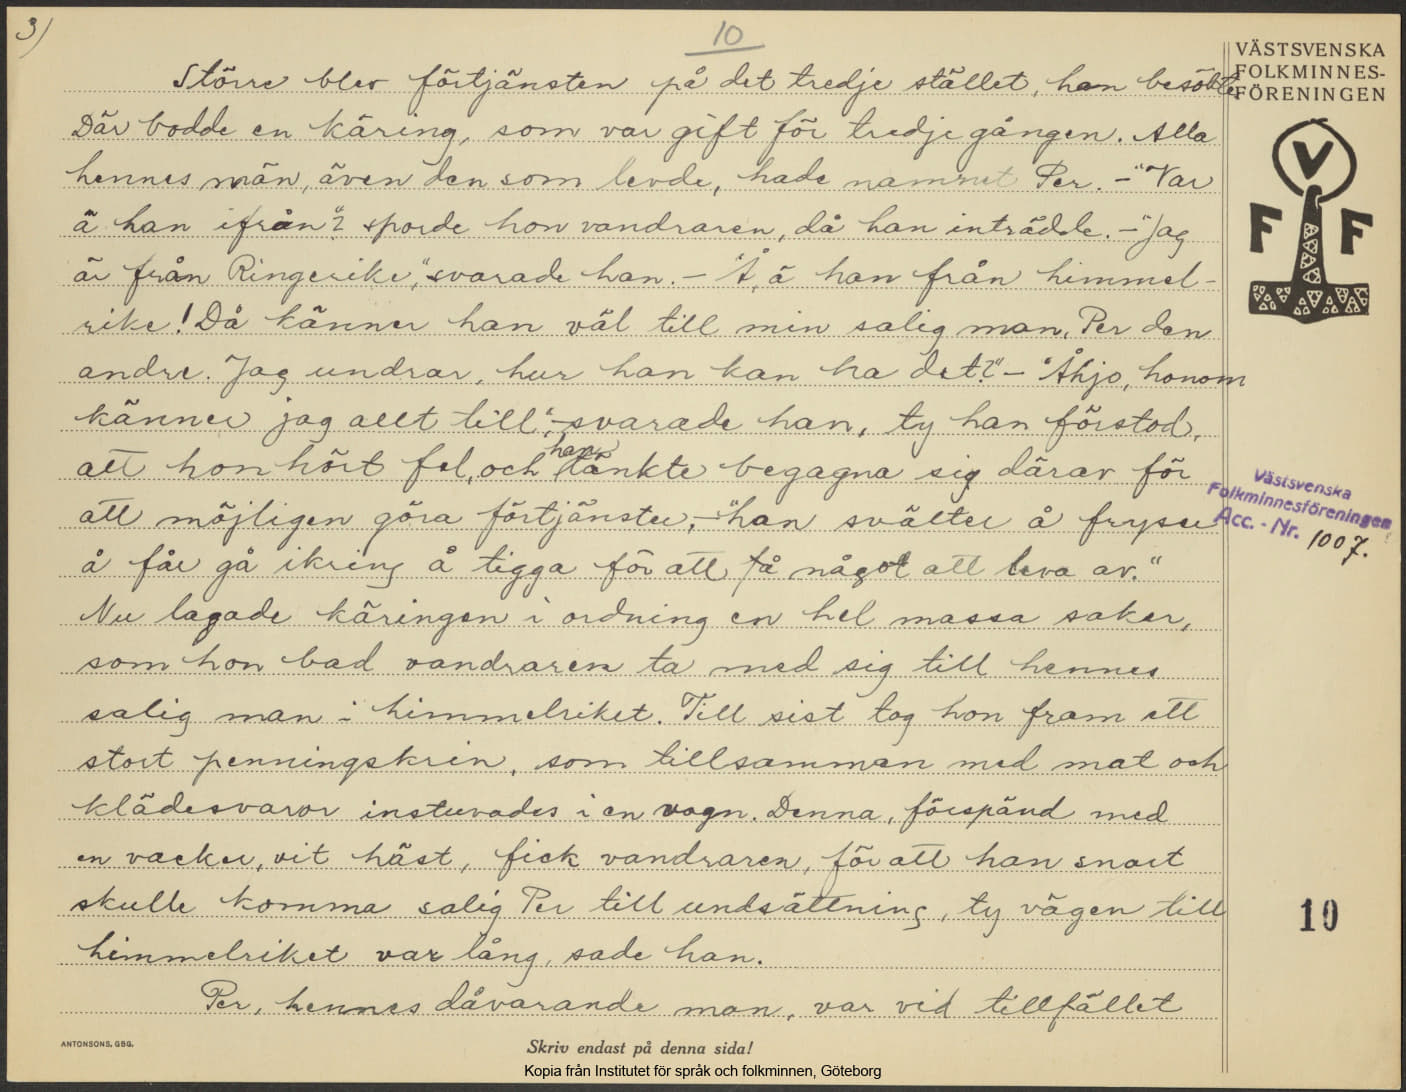 3)
10
Större blev förtjänsten på det tredje stället, han besökte.
Där bodde en käring, som var gift för tredje gången. Alla
hennes män, även den som levde, hade namnet Per. – "Var
ä han ifrån"? sporde hon vandraren, då han inträdde. – "Jag
är från Ringerike", svarade han. – "Å, ä han från himmel-
rike! Då känner han väl till min salig man, Per den
andre. Jag undrar, hur han kan ha det?" – "Åhjo, honom
känner jag allt till", svarade han, ty han förstod,
att hon hört fel, och han tänkte begagna sig därav för
att möjligen göra förtjänster, – "han svälter å fryser
å får gå ikring å tigga för att få något att leva av."
Nu lagade käringen i ordning en hel massa saker,
som hon bad vandraren ta med sig till hennes
salig man i himmelriket. Till sist tog hon fram ett
stort penningskrin, som tillsamman med mat och
klädesvaror instuvades i en vagn. Denna, förspänd med
en vacker, vit häst, fick vandraren, för att han snart
skulle komma salig Per till undsättning, ty vägen till
himmelriket var lång, sade han.
Per, hennes dåvarande man, var vid tillfället
VÄSTSVENSKA
FOLKMINNES-
FÖRENINGEN
V
F F
Västsvenska
Folkminnesföreningen
Acc. - Nr. 1007.
10
ANTONSONS, GBG.
Skriv endast på denna sida!
Kopia från Institutet för språk och folkminnen, Göteborg